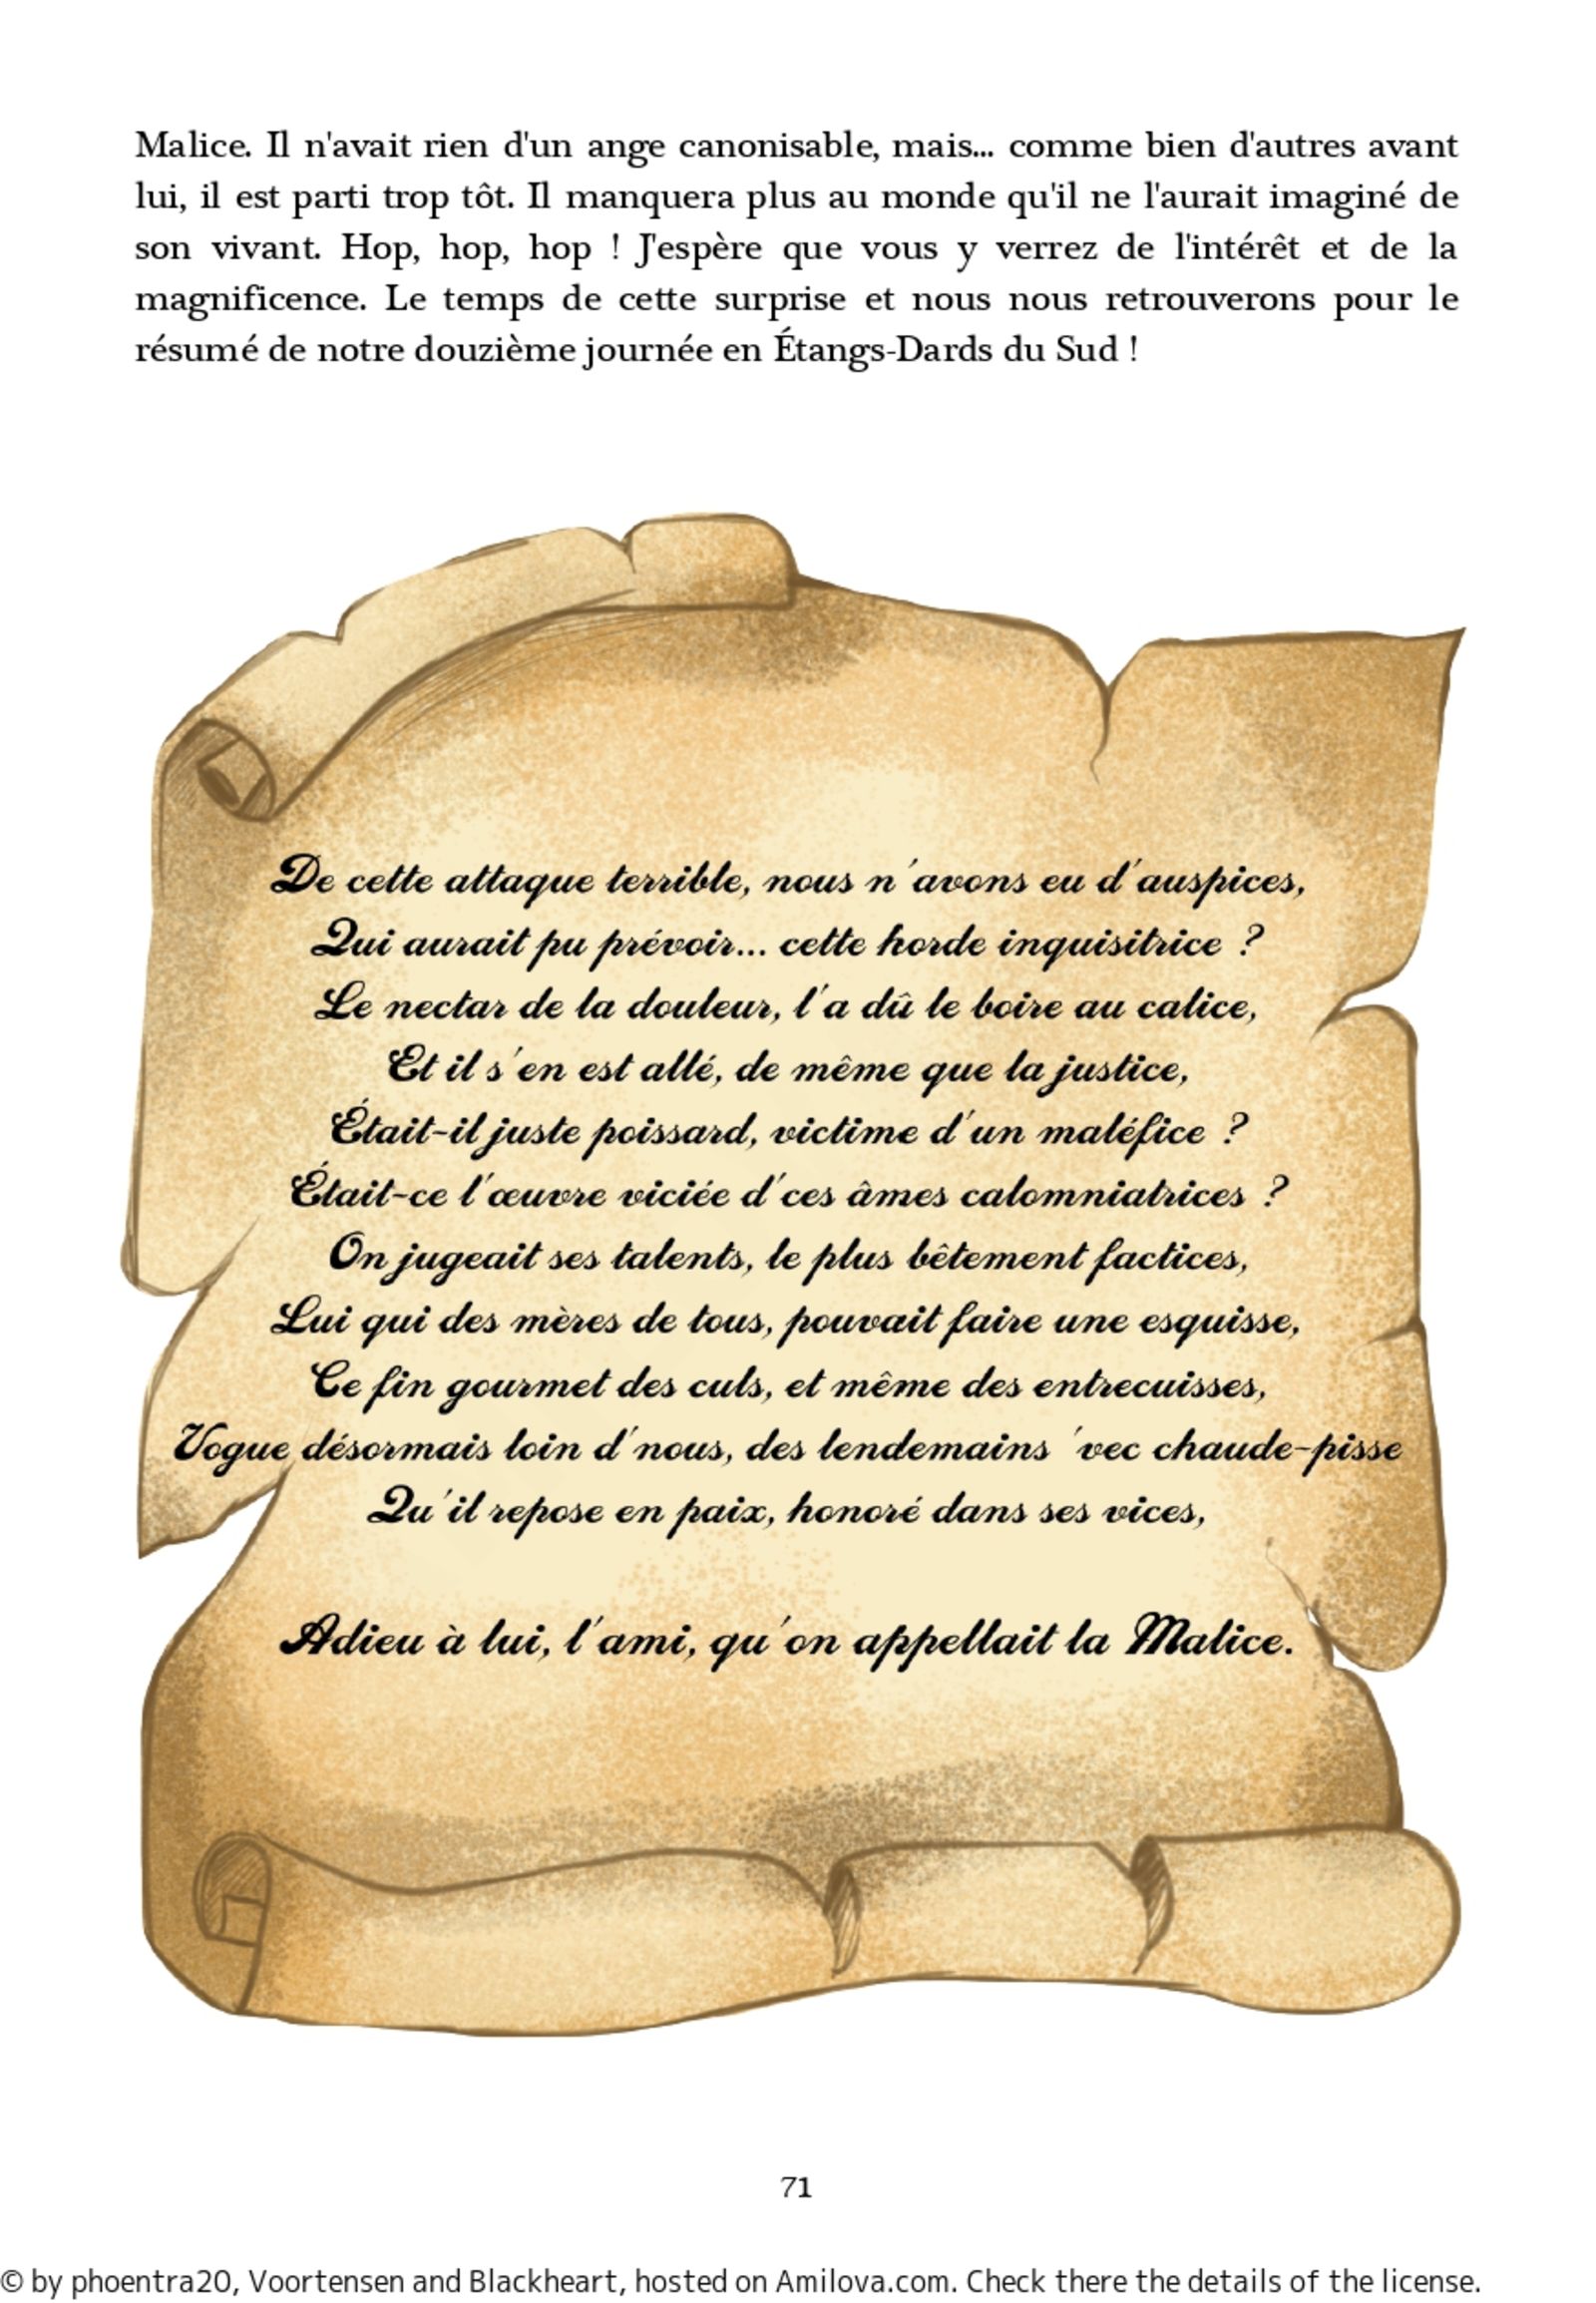 Malice. Il n'avait rien d'un ange canonisable, mais... comme bien d'autres avant
lui, il est parti trop tôt. Il manquera plus au monde qu'il ne l'aurait imaginé de
son vivant. Hop, hop, hop ! J'espère que vous y verrez de l'intérêt et de la
magnificence. Le temps de cette surprise et nous nous retrouverons pour le
résumé de notre douzième journée en Étangs-Dards du Sud !
De cette attaque terrible, nous n'avons eu d'auspices,
Qui aurait pu prévoir... cette horde inquisitrice ?
Le nectar de la douleur, l'a dû le boire au calice,
Et il s'en est allé, de même que la justice,
Était-il juste poissard, victime d'un maléfice ?
Était-ce l'œuvre viciée d'ces âmes calomniatrices ?
On jugeait ses talents, le plus bêtement factices,
Lui qui des mères de tous, pouvait faire une esquisse,
Ce fin gourmet des culs, et même des entrecuisses,
Vogue désormais loin d'nous, des lendemains 'vec chaude-pisse
Qu'il repose en paix, honoré dans ses vices,
Adieu à lui, l'ami, qu'on appellait la Malice.
71
© by phoentra20, Voortensen and Blackheart, hosted on Amilova.com. Check there the details of the license.